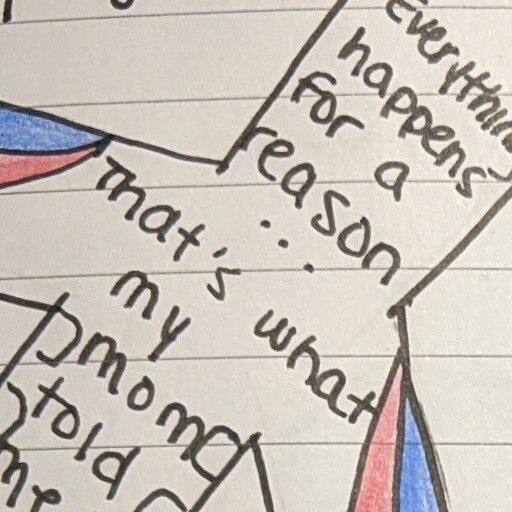 Everything
happens
for a
reason
...
That's what
my
mom
told
me